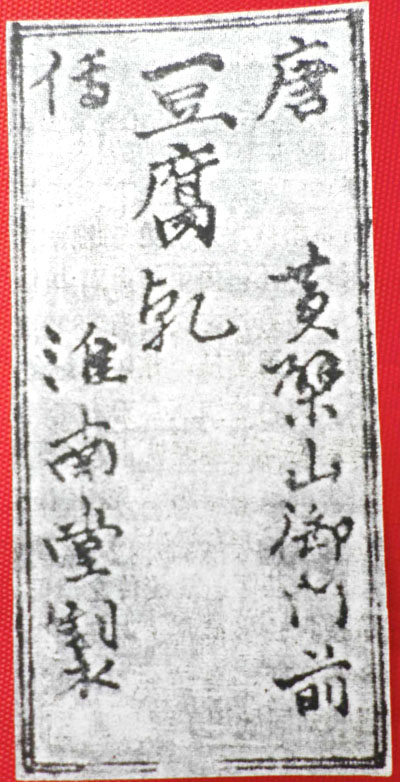 唐 黄檗山御門前
豆腐乹
傳 淮南堂製